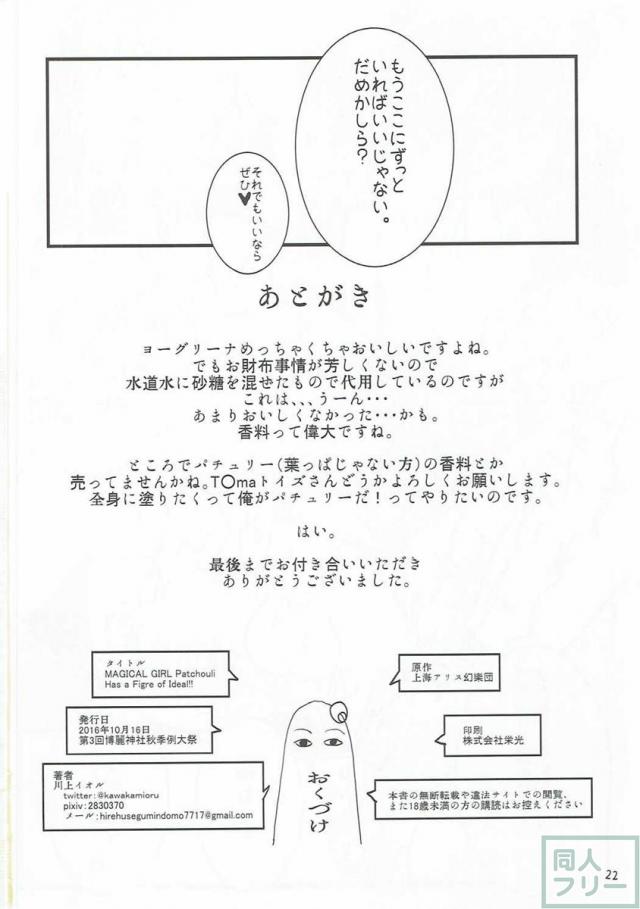 もうここにずっと
いればいいじゃない。
だめかしら？
それでもいいなら
ぜひ♥
あとがき
ヨーグリーナめっちゃくちゃおいしいですよね。
でもお財布事情が芳しくないので
水道水に砂糖を混ぜたもので代用しているのですが
これは、、、うーん・・・
あまりおいしくなかった・・・かも。
香料って偉大ですね。
ところでパチュリー(葉っぱじゃない方)の香料とか
売ってませんかね。T〇maトイズさんどうかよろしくお願いします。
全身に塗りたくって俺がパチュリーだ！ってやりたいのです。
はい。
最後までお付き合いいただき
ありがとうございました。
タイトル
MAGICAL GIRL Patchouli
Has a Figre of Ideal!!
原作
上海アリス幻樂団
発行日
2016年10月16日
第3回博麗神社秋季例大祭
印刷
株式会社栄光
著者
川上イオル
twitter:@kawakamioru
pixiv:2830370
メール:hirehusegumindomo7717@gmail.com
おくづけ
本書の無断転載や違法サイトでの閲覧、
また18歳未満の方の購読はお控えください
22
同人
フリー